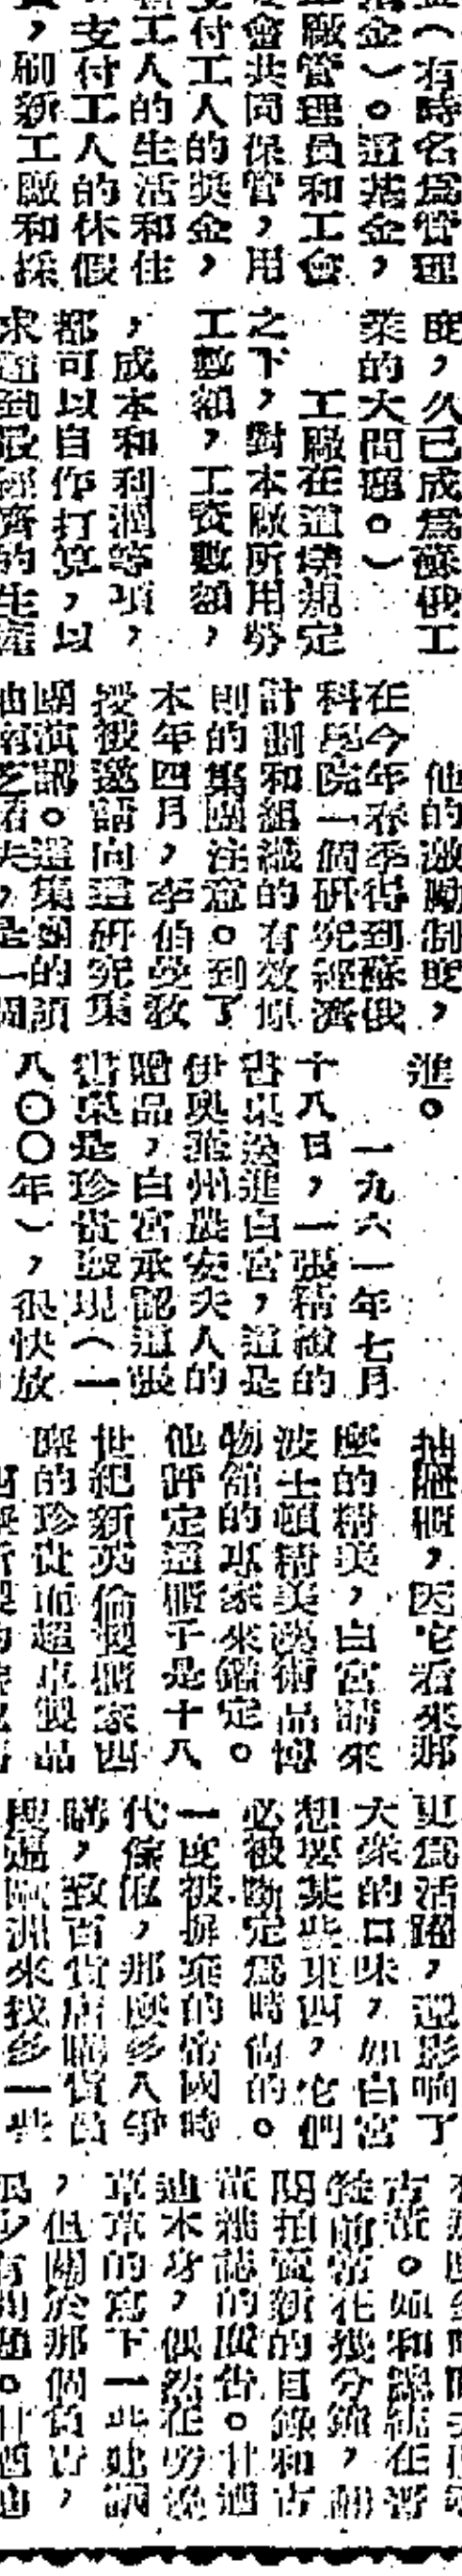 金（有時名爲管理
金）。這基金，
廠管理員和工會
會共同保管，用
支付工人的獎金，
工人的生活和住
支付工人的休假
，刷新工廠和採
度，久已成爲蘇俄工
業的大問題。）
工廠在這樣規定
之下，對本廠所用勞
工數額，工資數額，
，成本和利潤等項，
都可以自作打算，以
求達到最經濟的生產
他的激勵制度，
在今年春季得到蘇俄
科學院一個研究經濟
計劃和組織的有效原
則的集團注意。到了
本年四月，李伯曼教
授被邀請向這研究集
團演講。這集團的領
，是一個
進。
一九六一年七月
十八日，一張精緻的
書桌送進白宮，這是
伊與華州農安夫人的
贈品，白宮承認這張
書桌是珍貴發現（一
八〇〇年），很快放
抽屜櫃，因它看來那
麼的精美，白宮請來
波士頓精美藝術品博
物館的專家來鑑定。
他評定這櫃子是十八
世紀新英倫製櫃家西
蘇的珍貴而超卓製品
更爲活躍，還影响了
大衆的口味，如白宮
想要某些東西，它們
必被斷定爲時尙的。
一度被摒棄的帝國時
代傢俬，那麼多人爭
購，致百貨店購貨員
搜遍歐洲來找多一些
古董。她和總統在晋
從前常花幾分鐘，翻
閱拍賣新的目錄和古
董雜誌的廣告。甘迺
迪本身，偶然在旁邊
草草的寫下一些建議
，但關於那個負責，
很少有問過。甘迺迪